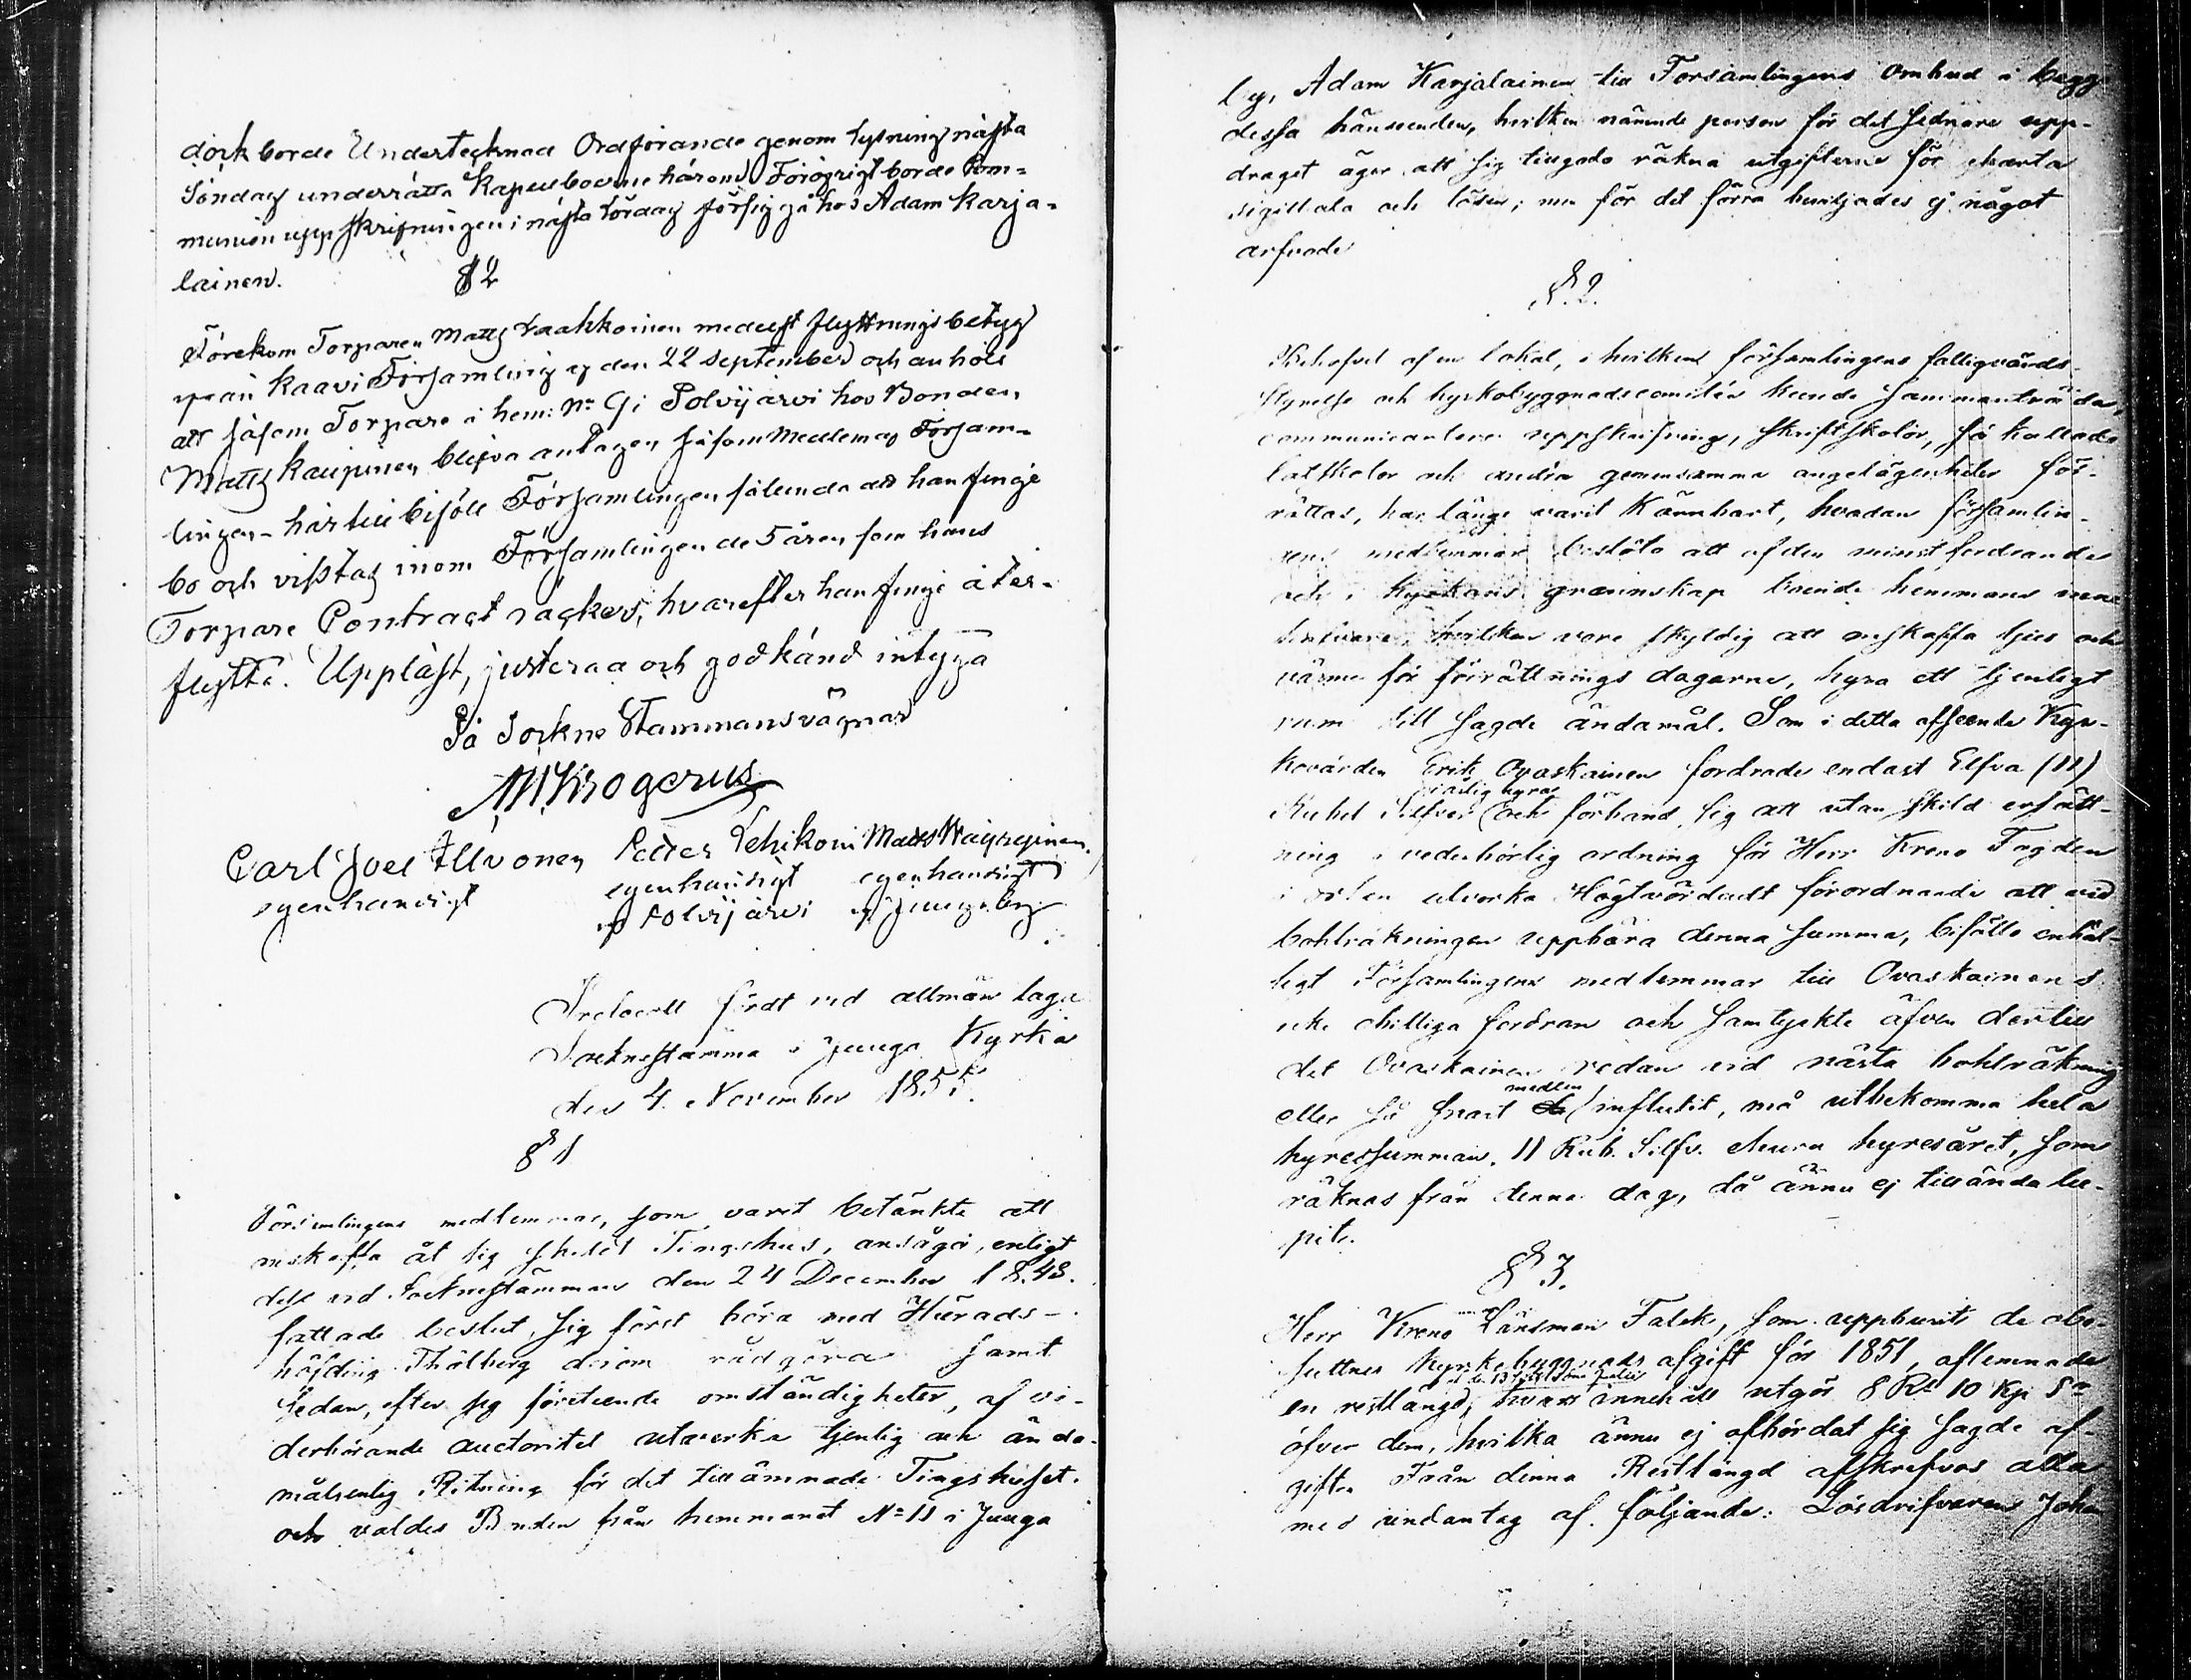 dock borde Undertecknad Ordförande genom lysning nästa
Söndag underrätta Kapellboerne härom. Föröfrigt borde Com-
munion uppskrifningen i nästa Lördag försiggå hos Adam Karja-
lainen.
§ 2
Förekom Torparen Matts Laakkoinen medelst flyttningsbetyg
från Kaavi Församling af den 22 September och anhöll
att såsom Torpare i hem: No 9 i Polvijärvi hos Bonden
Matts Kaupinen blifva antagen såsom Medlem af Församm-
lingen - härtill biföll Församlingen sålunda att han finge
bo och vistas inom Församlingen de 5 åren som hans
Torpare Contract räcker, hvarefter han finge åter-
flytta. Uppläst, justerad och godkänd intyga
På Sockne Stammans vägnar
A M Krogerus
Carl Joel Illvonen Petter Lehikoin Matts Wäyrynen
egenhändigt egenhändigt egenhändigt
af Polvijärvi af Juuga by
Protocoll fördt vid allmän laga
Socknestämma i Juuga Kyrka
den 4 November 1855.
§ 1
Församlingens medlemmar, som varit betänkte att
anskaffa åt sig skildt Tingshus, ansågo, enligt
dess vid Socknestämman den 24 December 1848.
fattade beslut, sig först böra med Härads-
höfding Thölberg derom rådgöra samt
sedan, efter sig företeende omständigheter, af ve-
derbörande auctoritet utverka tjenlig och ända-
målsenlig Ritning för det tillämnade Tingshuset.
och valdes Bonden från hemmanet No 11 i Juuga
by, Adam Karjalainen till Församlingens Ombud i begge
dessa hänseenden, hvilken nämnde person för det sednare upp-
draget äger att sig tillgodo räkna utgifterne för charta
sigillata och lösen; men för det förra beviljades ej något
arfvode
§. 2.
Behofvet af en lokal, i hvilken församlingens fattigvårds-
styrelse och kyrkobyggnadscomitén kunde sammanträda,
communicanternes uppskrifning, skriftskolor, så kallade
lässkolor och andra gemensamma angelägenheter för-
rättas, har länge varit kännbart, hvadan församlin-
gens medlemmar beslöto att af den minst fordrande
och i kyrkans grannskap boende hemmans inne-
hafvare, hvilken vore skyldig att anskaffa ljus och
värme för förrättnings dagarne, hyra ett tjenligt
rum till sagde ändamål. Som i detta afseende Kyr-
kovärden Erik Ovaskainen fordrade endast Elfva (11)
Rubel Silfver i årlig hyra och förband sig att utan skild ersätt-
ning i vederbörlig ordning för Herr Krono Fogden
i orten utverka Högtvördadt förordnande att vid
bohlräkningen uppbära denna summa, biföllo enhäl-
ligt Församlingens medlemmar till Ovaskainens
icke obilliga fordran och samtyckte äfven dertill
det Ovaskainen redan vid nästa bohlräkning
eller så snart medlen influtit, må utbekomma hela
hyressumman, 11 Rub. Silfv. churu hyresåret, som
räknas från denna dag, då ännu ej tilländalu-
pit.
§ 3.
Herr Krono Länsman Falck, som uppburit de obe-
suttnes kyrkobyggnads afgift för 1851, aflemnade
en restlängd, hvars innehåll utgör 8 Rub 10 Kp Sr
öfver dem, hvilka ännu ej afbördat sig sagde af-
gift. Från denna Restlängd afskrefvos alla
med undantag af följande: Lösdrifvaren Johan